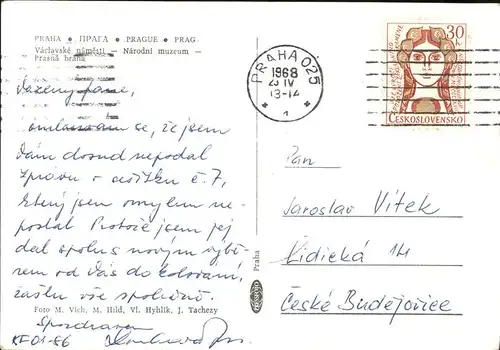 PRAHA • ПРАГА • PRAGUE • PRAG
Václavské náměstí — Národní muzeum —
Prašná brána
Vážený pane,
omlouvám se, že jsem
Vám dosud nepodal
zprávu o sešitku č. 7,
který jsem omylem ne-
poslal. Protože jsem jej
dal spolu s novým výbě-
rem od Vás do kolování,
zašlu vše společně.
Foto M. Vích, M. Hild, Vl. Hyhlík, J. Tachezy
S pozdravem
KF 01-86
Praha
PRAHA 025
1968
23 IV
13-14
1
30
ČESKOSLOVENSKO
Pan
Jaroslav Vítek
Lidická 14
České Budějovice